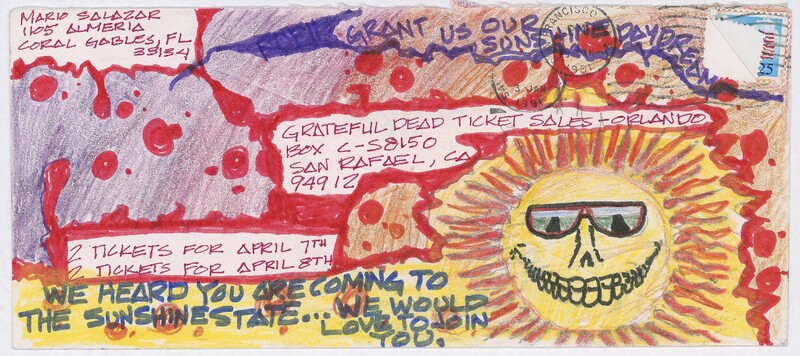 MARIO SALAZAR
1105 ALMERIA
CORAL GABLES, FL
33134
GRANT US OUR
SUNSHINE DAYDREAM
25
GRATEFUL DEAD TICKET SALES - ORLANDO
BOX C-S8150
SAN RAFAEL, CA
94912
2 TICKETS FOR APRIL 7TH
2 TICKETS FOR APRIL 8TH
WE HEARD YOU ARE COMING TO
THE SUNSHINE STATE... WE WOULD
LOVE TO JOIN
YOU.